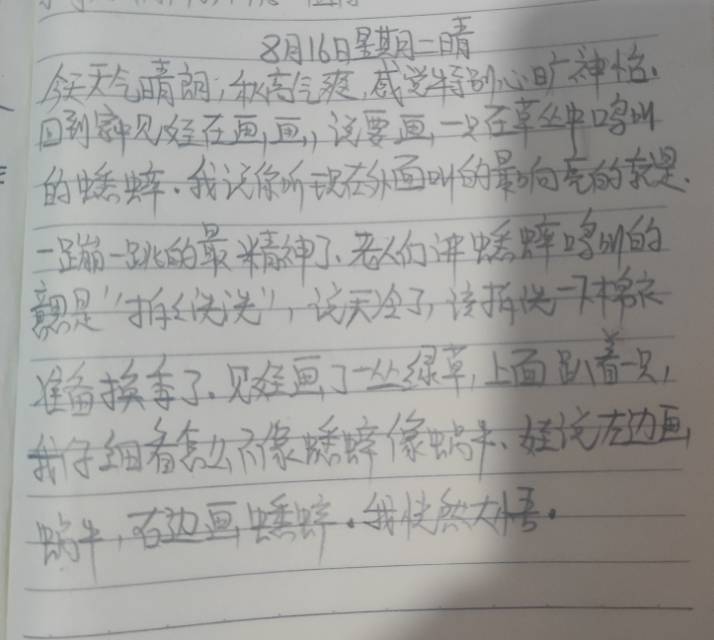 8月16日星期二晴
今天天气晴朗,秋高气爽,感觉特别心旷神怡.
回到家中见娃在画,画,,说要画,一只在草丛中鸣叫
的蟋蟀.我说你听现在外面叫的最响亮的就是.
一蹦一跳的最精神了、老人们讲蟋蟀鸣叫的
意思是"拆拆洗洗",说天冷了,该拆洗一下棉衣
准备换季了.见娃画了一丛绿草,上面趴着一只,
我仔细看怎么不像蟋蟀像蜗牛、娃说左边画
蜗牛,右边画蟋蟀.我恍然大悟.